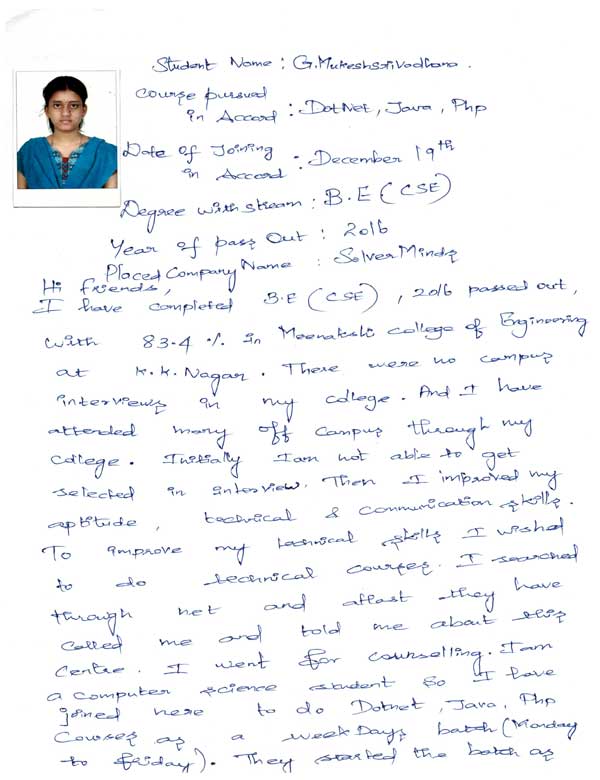 Student Name : G.MukeshsriVadhana.
Course pursued
in Accord : DotNet, Java, Php
Date of Joining
in Accord : December 19th
Degree with stream : B.E (CSE)
Year of pass Out : 2016
Placed Company Name : SolverMinds
Hi friends,
I have completed B.E (CSE), 2016 passed out,
with 83.4 % in Meenakshi college of Engineering
at K.K.Nagar. There were no campus
interviews in my college. And I have
attended many off campus through my
college. Initially I am not able to get
selected in interview. Then I improved my
aptitude, technical & communication skills.
To improve my technical skills I wished
to do technical courses. I searched
through net and atlast they have
called me and told me about this
centre. I went for counselling. I am
a computer science student so I have
joined here to do Dotnet, Java, Php
Courses as a weekDays batch (Monday
to friday). They started the batch as